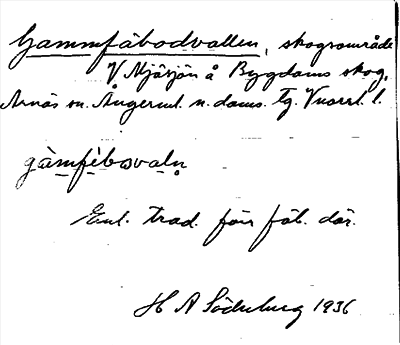 Gammfäbodvallen, skogsområde
V Mjösjön å Bygdoms skog,
Arnäs sn. Ångerml. n. doms. tg. Vnorrl. l.
gàmfèbωvaln̥
Enl. trad. förr fäb. där.
H A Söderberg 1936